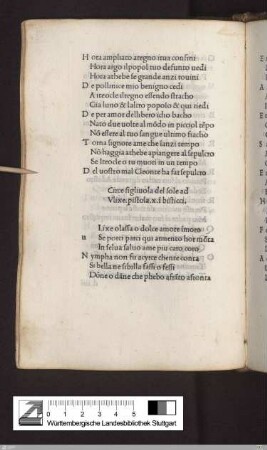 Hora ampliato aregno itua confini
Hora argo ilpopol tuo defunto uedi
Hora athebe se grande anzi rouini
De pollonice mio benigno cedi
A iteocle ilregno essendo stracho
Gia luno & laltro popolo & qui uiedi
De per amor dellibero idio bacho
Nato due uolte al módo in picciol tépo
Nó essere al tuo sangue ultimo fiacho
Torna signore ame che sanzi tempo
Nó haggia athebe apiangere al sepulcro
Se Iteocle o tu muori in un tempo
Del uostro mal Cleonte ha far sepulcro
Circe figliuola del sole ad
Vlixe. pistola. x. I bisticci.
Lixe o lassa o dolce amore imoro
Se porti parti qui amento hor
In selua saluo ame piu caro coro
Nympha non fu aiyrce chente conta
Si bella ne sibilla fassi o fessi
Dóne o dáne che phebo afflito affonta
0 1 2 3 4 5
Württembergische Landesbibliothek Stuttgart